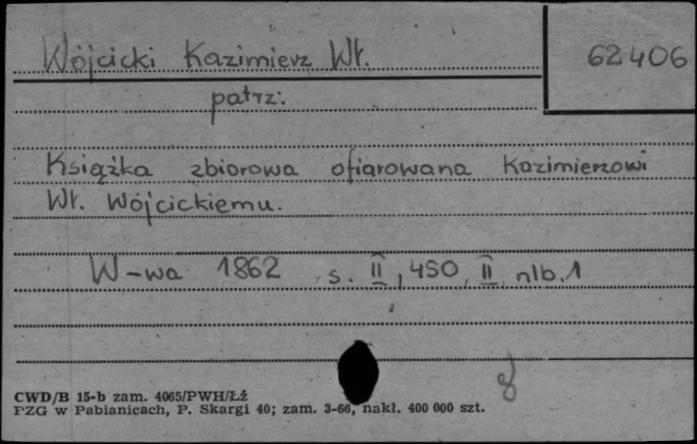 Wójcicki Kazimierz Wł.
62406
patrz:
Książka zbiorowa ofiarowana Kazimierzowi
Wł. Wójcickiemu.
W-wa 1862 s. II, 450, II nlb. 1
8
CWD/B 15-b zam. 4065/PWH/Łź
PZG w Pabianicach, P. Skargi 40; zam. 3-66, nakł. 400 000 szt.